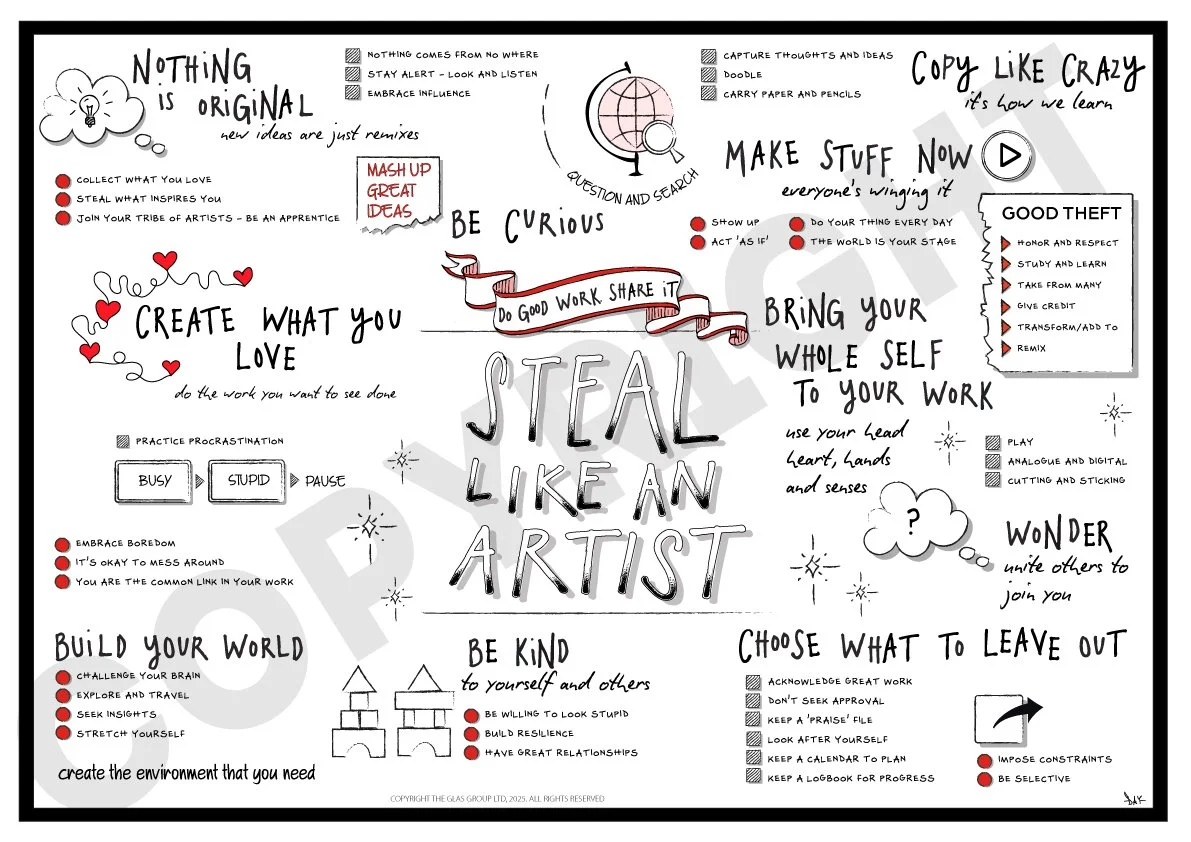 NOTHING
IS ORIGINAL
new ideas are just remixes
NOTHING COMES FROM NO WHERE
STAY ALERT – LOOK AND LISTEN
EMBRACE INFLUENCE
COLLECT WHAT YOU LOVE
STEAL WHAT INSPIRES YOU
JOIN YOUR TRIBE OF ARTISTS – BE AN APPRENTICE
MASH UP
GREAT
IDEAS
QUESTION AND SEARCH
BE CURIOUS
CAPTURE THOUGHTS AND IDEAS
DOODLE
CARRY PAPER AND PENCILS
COPY LIKE CRAZY
it's how we learn
MAKE STUFF NOW
everyone's winging it
SHOW UP
ACT 'AS IF'
DO YOUR THING EVERY DAY
THE WORLD IS YOUR STAGE
GOOD THEFT
HONOR AND RESPECT
STUDY AND LEARN
TAKE FROM MANY
GIVE CREDIT
TRANSFORM/ADD TO
REMIX
CREATE WHAT YOU
LOVE
do the work you want to see done
PRACTICE PROCRASTINATION
BUSY
STUPID
PAUSE
EMBRACE BOREDOM
IT'S OKAY TO MESS AROUND
YOU ARE THE COMMON LINK IN YOUR WORK
DO GOOD WORK SHARE IT
STEAL
LIKE AN
ARTIST
BRING YOUR
WHOLE SELF
TO YOUR WORK
use your head
heart, hands
and senses
PLAY
ANALOGUE AND DIGITAL
CUTTING AND STICKING
?
WONDER
unite others to
join you
BUILD YOUR WORLD
CHALLENGE YOUR BRAIN
EXPLORE AND TRAVEL
SEEK INSIGHTS
STRETCH YOURSELF
create the environment that you need
BE KIND
to yourself and others
BE WILLING TO LOOK STUPID
BUILD RESILIENCE
HAVE GREAT RELATIONSHIPS
CHOOSE WHAT TO LEAVE OUT
ACKNOWLEDGE GREAT WORK
DON'T SEEK APPROVAL
KEEP A 'PRAISE' FILE
LOOK AFTER YOURSELF
KEEP A CALENDAR TO PLAN
KEEP A LOGBOOK FOR PROGRESS
IMPOSE CONSTRAINTS
BE SELECTIVE
COPYRIGHT THE GLAS GROUP LTD, 2025. ALL RIGHTS RESERVED
COPYRIGHT